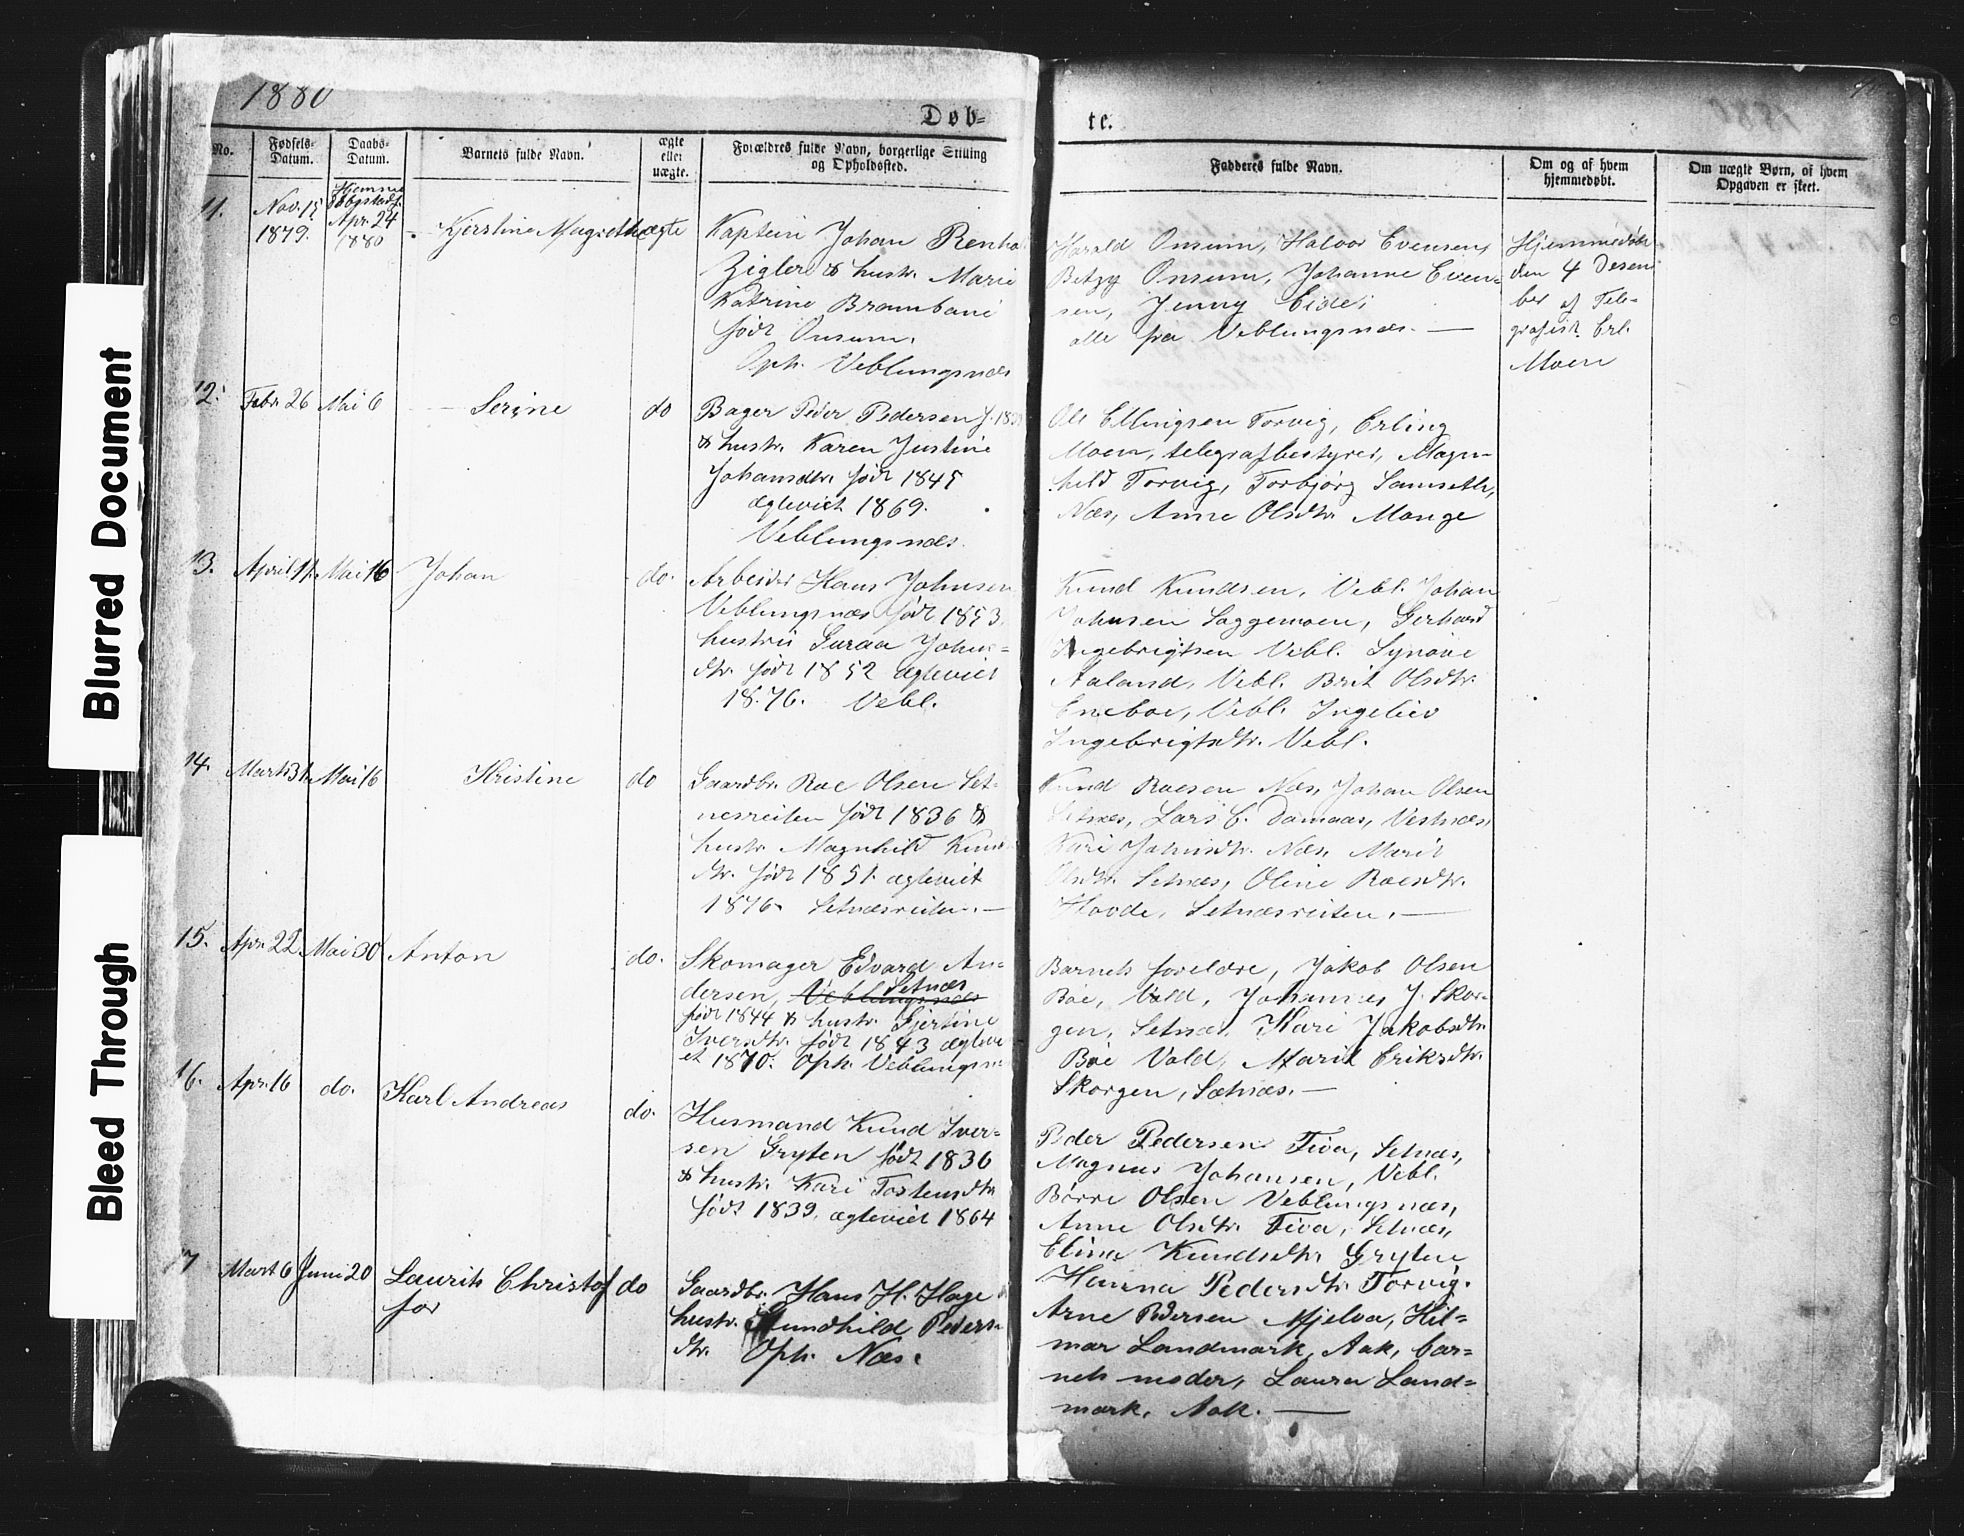 1880
Døb-
te.
No.
Fødsels-
Datum.
Daabs-
Datum.
Barnets fulde Navn.
ægte
eller
uægte.
Forældres fulde Navn, borgerlige Stilling
og Opholdssted.
Fadderes fulde Navn.
Om og af hvem
hjemmedøbt.
Om uægte Børn, af hvem
Opgaven er skeet.
11.
Nov. 15
1879.
Apr. 24
1880
Kjerstine Magrethe
ægte
Kaptein Johan Renho
Zigler & hustr. Marie
Katrine Brambani
født Onsum.
Oph. Veblungsnæs
Harald Onsum, Halvor Evensen,
Betzy Onsum, Johanne Even-
sen, Jenny Eide,
alle fra Veblungsnæs. —
Hjemmedøbt
den 4 Desem
ber af Tele-
grafist Erl.
Moen
12.
Febr. 26
Mai 6
Serine
do
Bager Peder Pedersen f. 18
& hustr. Karen Justine
Johansdtr. født 1845
ægteviet 1869.
Veblungsnæs.
Ole Ellingsen Torvig, Erling
Moen, telegrafbestyrer, Magn-
hild Torvig, Torbjørg Samseth,
Næs, Anne Olsdtr. Monge
13.
April 11.
Mai 16
Johan
do.
Arbeider Hans Johnsen
Veblungsnæs født 1853,
hustru Guraa Johns-
dtr. født 1852 ægteviet
1876. Vebl.
Knud Knudsen, Vebl. Johan
Johnsen Soggemoen, Gerhard
Ingebrigtsen Vebl. Synøve
Aaland, Vebl. Brit Olsdtr.
Eneboe, Vebl. Ingebor
Ingebrigtsdtr. Vebl.
14.
Marts 31
Mai 16
Kristine
do
Gaardbr. Roe Olsen Set-
nesreiten født 1836 &
hustr. Magnhild Knuds
dtr. født 1851. ægteviet
1876. Setnæsreiten. —
Knud Roesen Næs, Johan Olsen
Setnæs, Lars C. Damaas, Vestnæs,
Kari Johnsdtr. Næs, Marit
Olsdtr. Setnæs, Oline Roesdtr.
Hovde, Setnæsreiten. —
15.
Apr. 22
Mai 30
Anton
do.
Skomager Edvard An-
Setnæs
dersen, Veblungsnæs
født 1844 & hustr. Gjertine
Iversdtr. født 1843 ægtevi
et 1870. Oph. Veblungsn.
Barnets forældre, Jakob Olsen
Bøe, Vold, Johannes J. Skor-
gen, Setnæs, Kari Jakobsdtr.
Bøe Vold, Marit Eriksdtr.
Skorgen, Sætnæs. —
16.
Apr. 16
do.
Karl Andreas
do.
Husmand Knud Iver-
sen Gryten født 1836
& hustr. Kari Tostensdtr
født 1839, ægteviet 1864
Peder Pedersen Tiva, Setnæs,
Magnus Johansen, Vebl.
Børre Olsen Veblungsnæs,
Anne Olsdtr. Tiva, Setnæs,
Elina Knudsdtr. Gryten
17
Mart 6
Juni 20
Laurits Christof
fer
do
Gaardbr. Hans H. Hage
hustr. Gundhild Peders-
dtr. Oph. Næs.
Hanna Pedersdtr. Torvig.
Arne Pedersen Mjelva, Hil-
mar Landmark, Aak, bar-
nets moder, Laura Land-
mark, Aak. —
Blurred Document
Bleed Through